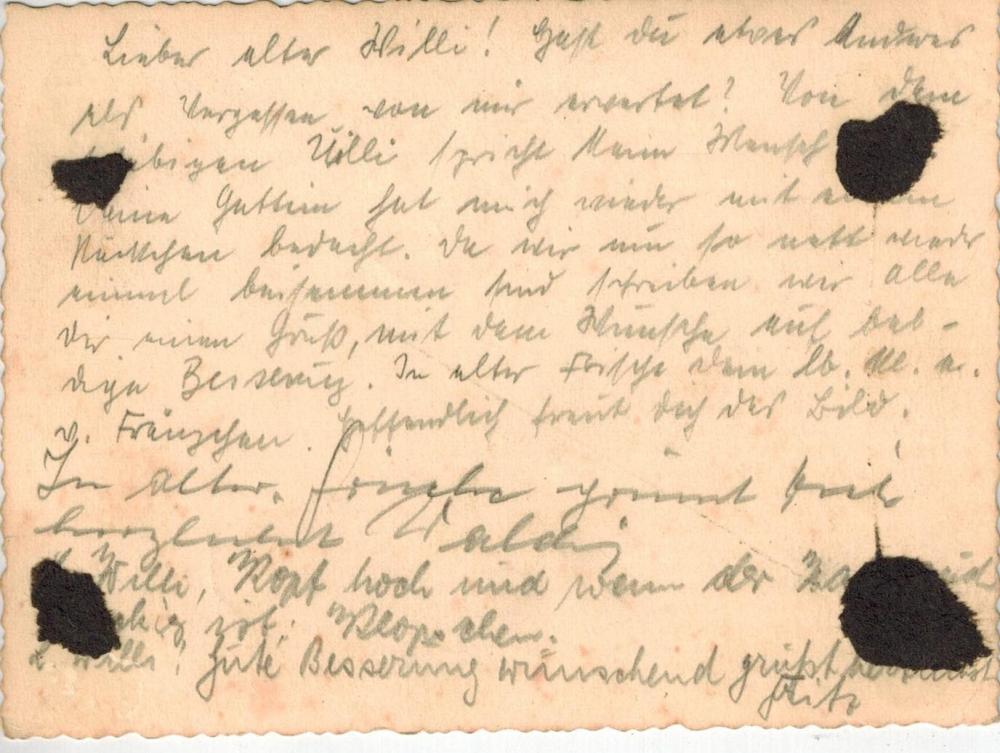 Lieber alter Willi! Hast du etwas Anderes
als Vergessen von mir erwartet? Von dem
Willi spricht kein Mensch
Deine Gattin hat mich wieder mit
bedacht. Da wir nun so nett wieder
einmal beisammen sind schreiben wir alle
dir einen Gruß, mit dem Wunsche auf bal-
dige Besserung. In alter Frische dein lb.
v. Fränzchen. Hoffendlich freut dich das Bild.
In alter Frische grüsst
herzlichst Waldi
Willi, Kopf hoch und wenn der
ist,
l. Willi! Gute Besserung wünschend grüßt herzlichst
Fritz